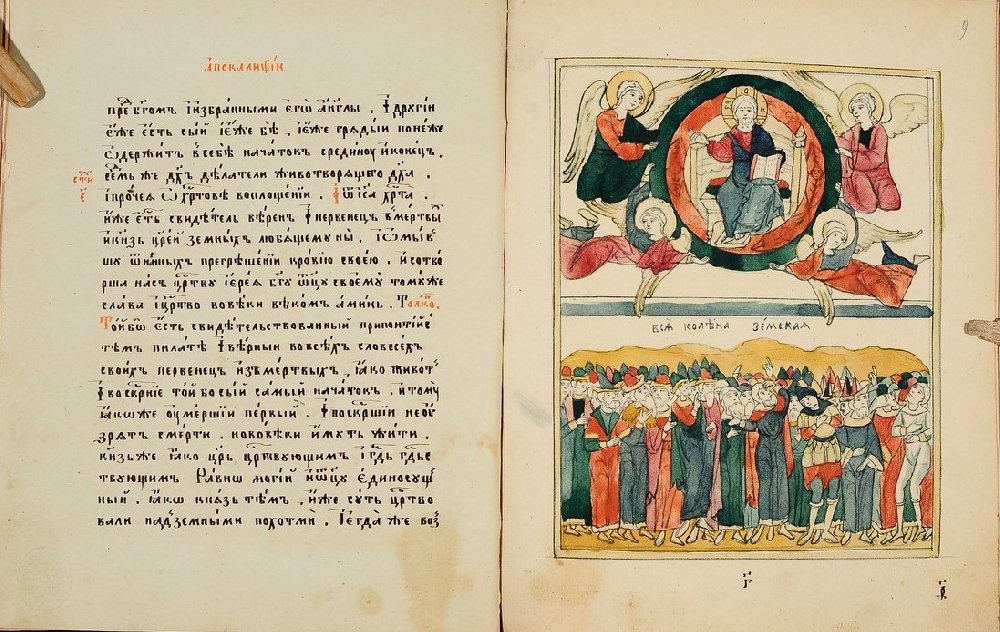 Апокалиѱїи
пре бгомъ їизбранными его а҆нглы . І҆ другїи
е҆же есть сыи їе҆же бѣ , їе҆же грядыи понеже
ѡдержитъ в себѣ начатокъ срединоу и конецъ .
семь же дхъ дѣлатели животворящаго дха .
їпрочея ѡ хртовѣ воплощенїи . І҆ѿ їса хрта .
и҆же есть свидѣтель вѣренъ І҆ первенецъ и҆змертвы
и кнзь црей земныхъ любящему ны , І҆ѡмыв
шу ѿ нашихъ прегрѣшенїи кровїю своею . и҆ сотво
рша насъ цртву їерея бгу ѿцу своему томуже
слава їцртво вовѣки вѣкомъ аминь . Толко
Той бо есть свидѣтельствованный припонтїйс
тѣмъ пилатѣ І҆ вѣрныи во всѣхъ словесехъ
своихъ первенецъ и҆змертвыхъ , ꙗко живот
І҆ воскрнїе той бо сый самый начатокъ , и тому
ꙗкоже оумершїи первый . І҆ воскршїи не оу
зрятъ смерти . но вовѣки и҆мутъ жити .
кнзь же ꙗко црь , цртвующимъ І҆ гдь гдьс
твующимъ Равно могїй и҆ ѿцу е҆диносущ
ный . ꙗко кнзь тѣмъ , и҆же суть цртво
вали надземными похотми . І҆ егда же воз
сти
е
9
вся колѣна земская
г